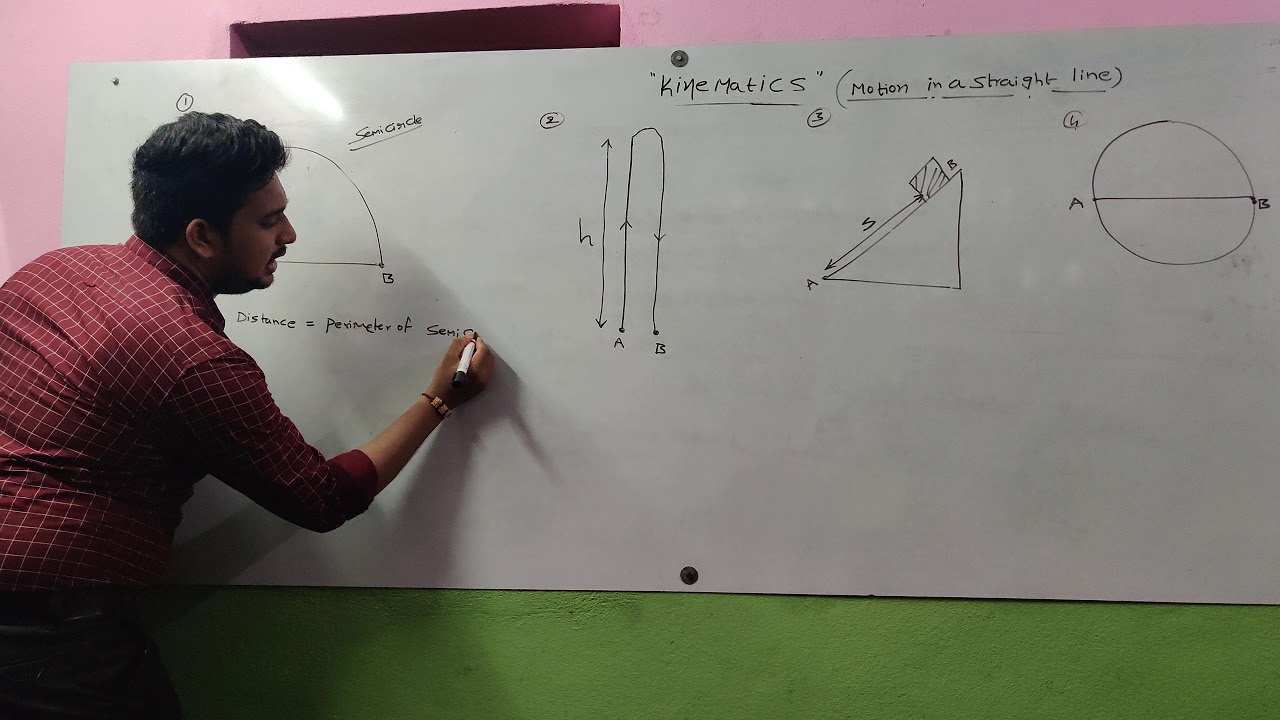 "Kinematics" (Motion in a straight line)
1
Semicircle
B
Distance = Perimeter of Semic
2
h
A B
3
B
S
A
4
A B